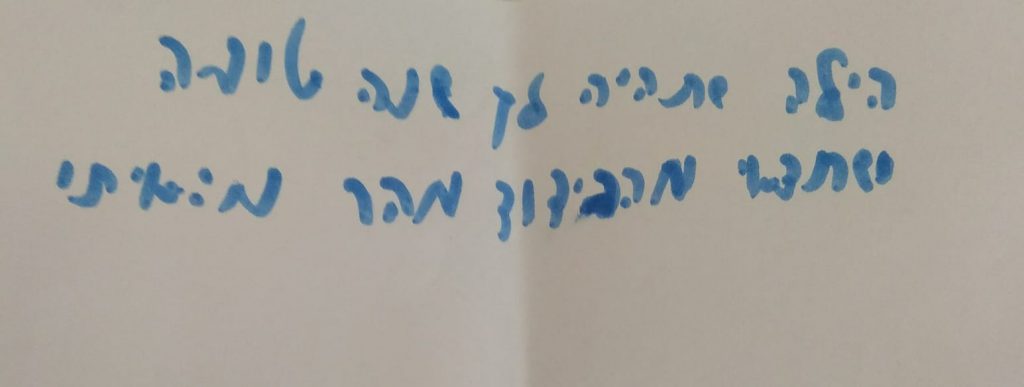 הילה שתהיה לך שנה טובה
ושתצאי מהבידוד מהר מ:איתי